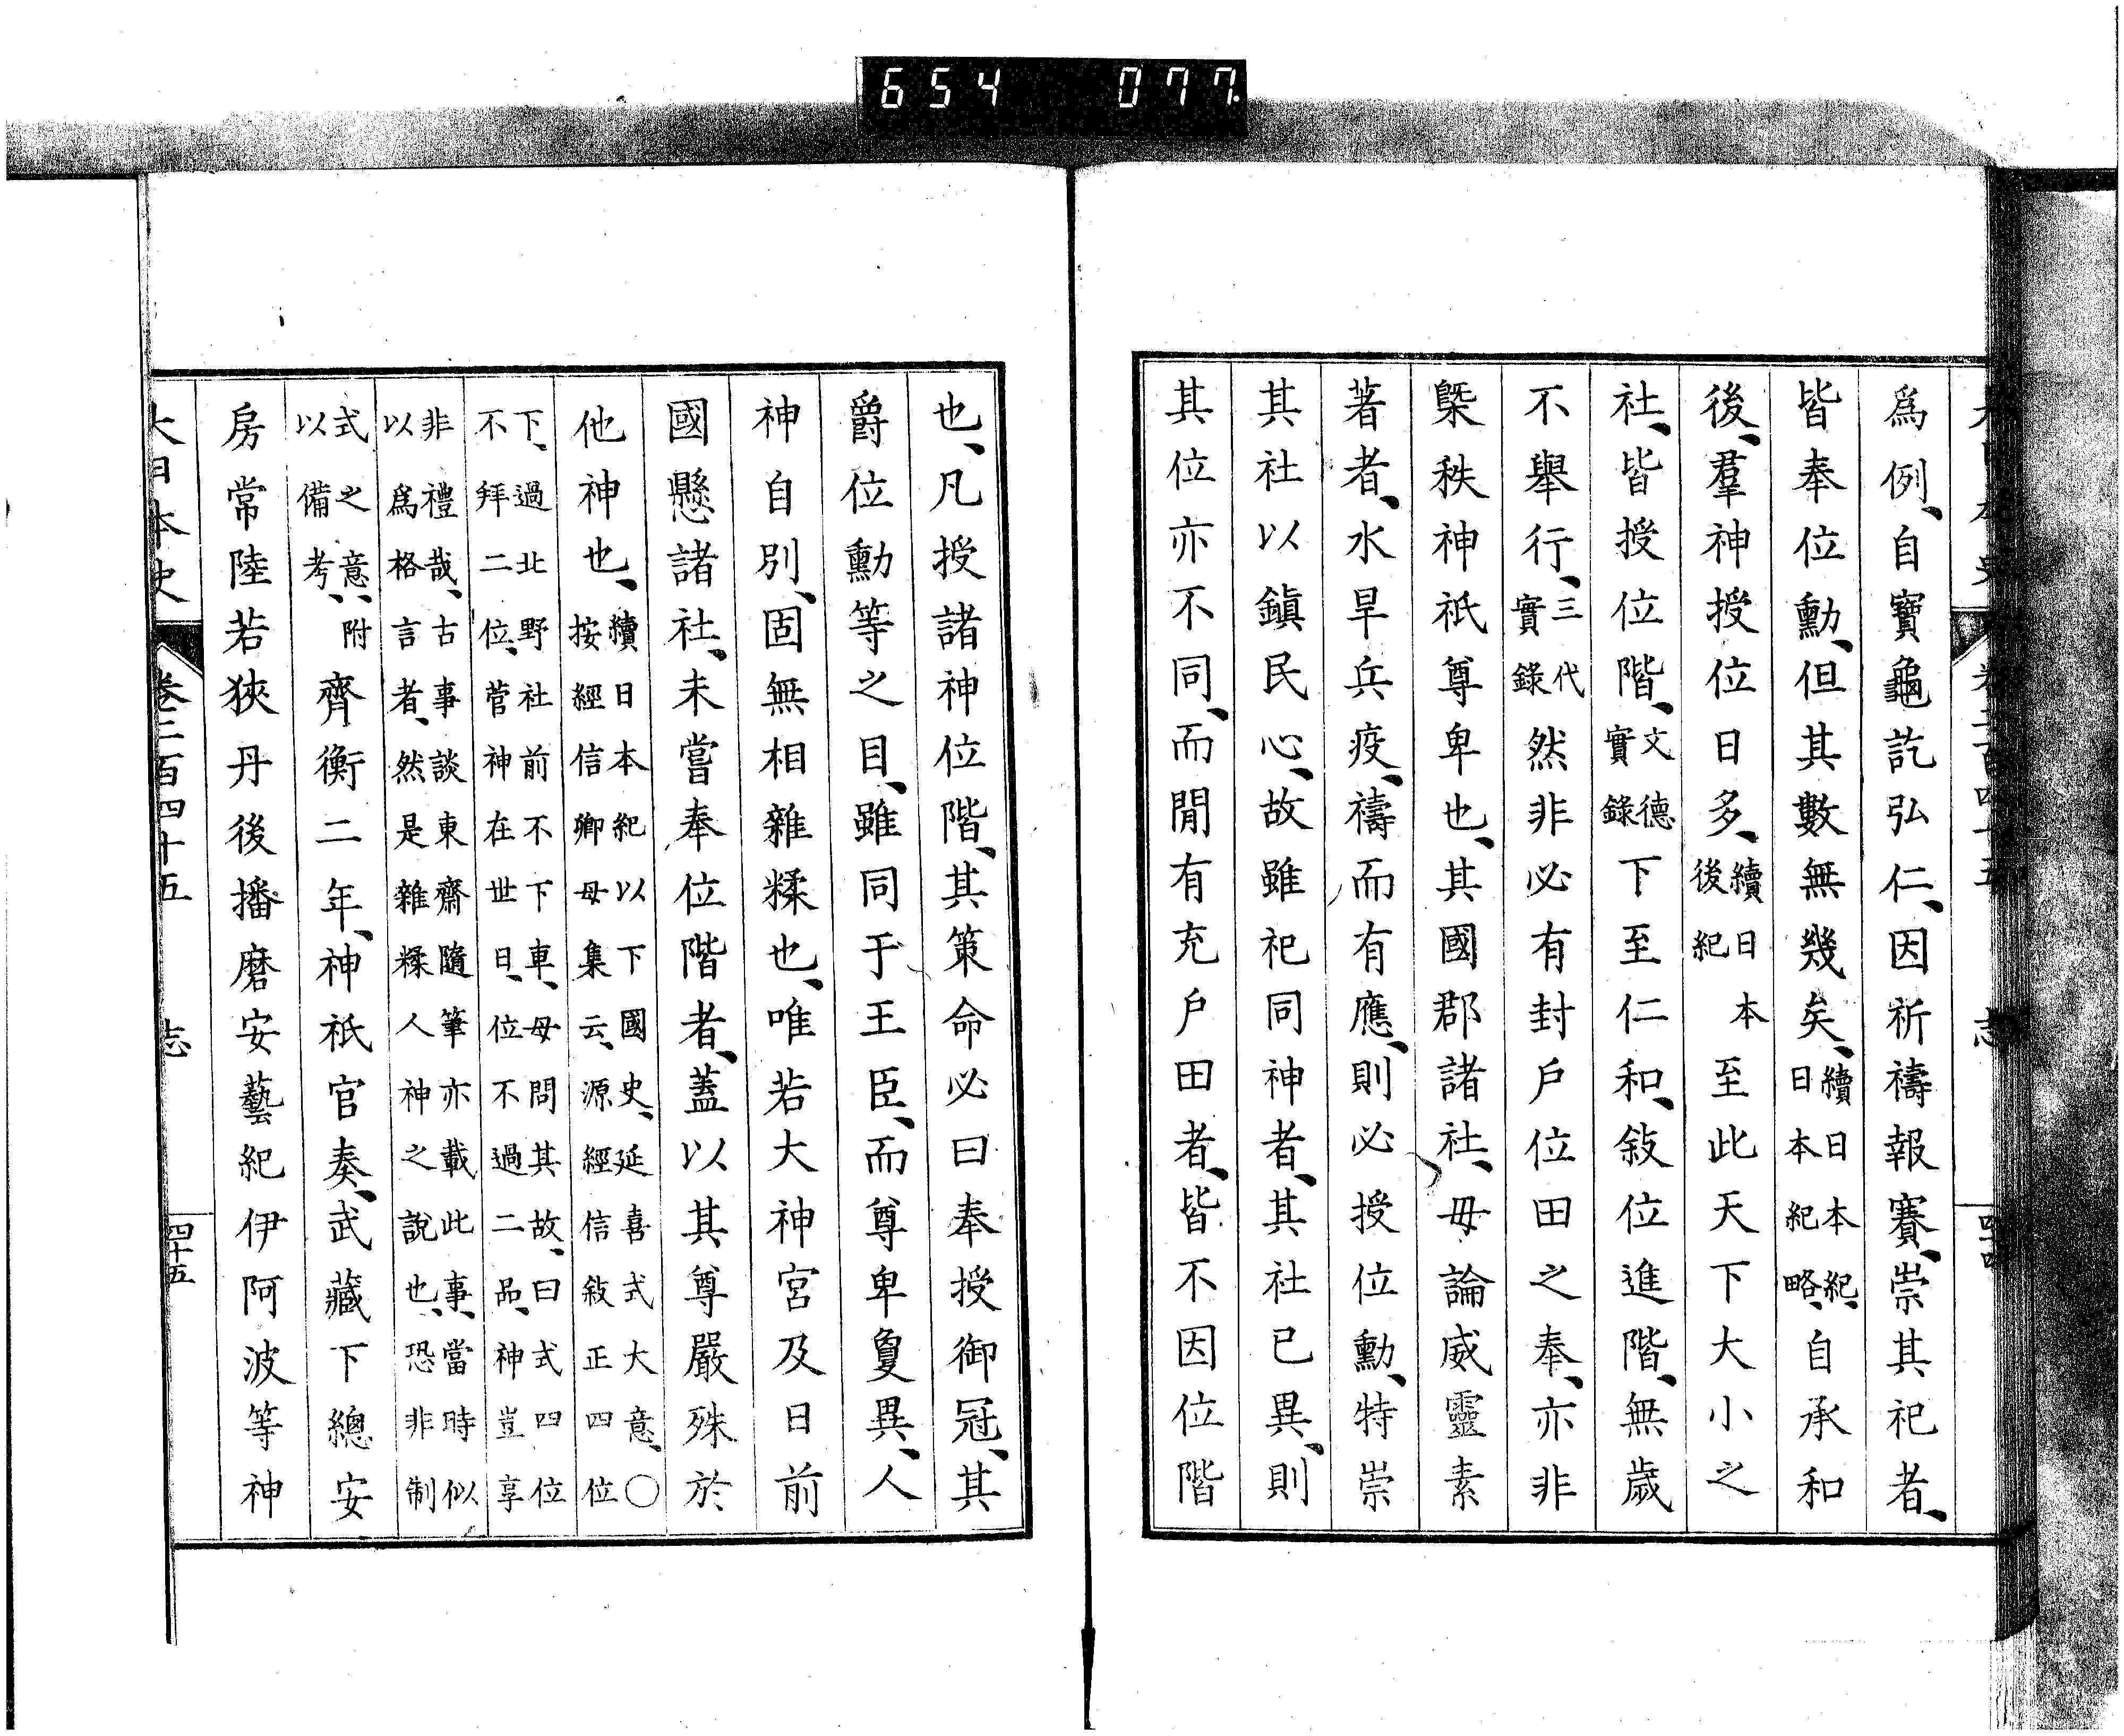 654 077.
爲例、自寶龜訖弘仁、因祈禱報賽、崇其祀者、
皆奉位勳、但其數無幾矣、續日本紀、日本紀略、自承和
後、羣神授位日多、續日本後紀至此天下大小之
社、皆授位階、文德實錄下至仁和、敍位進階、無歲
不舉行、三代實錄然非必有封戶位田之奉、亦非
槩秩神祇尊卑也、其國郡諸社、毋論威靈素
著者、水旱兵疫、禱而有應、則必授位勳、特崇
其社以鎭民心、故雖祀同神者、其社已異、則
其位亦不同、而閒有充戶田者、皆不因位階
也、凡授諸神位階、其策命必曰奉授御冠、其
爵位勳等之目、雖同于王臣、而尊卑敻異、人
神自別、固無相雜糅也、唯若大神宮及日前
國懸諸社、未嘗奉位階者、蓋以其尊嚴殊於
他神也、續日本紀以下國史、延喜式大意、○按經信卿母集云、源經信敍正四位
下、過北野社前不下車、母問其故、曰式四位不拜二位、菅神在世日、位不過二品、神豈享
非禮哉、古事談東齋隨筆亦載此事、當時似以爲格言者、然是雜糅人神之說也、恐非制
式之意、附以備考、齊衡二年、神祇官奏、武藏下總安
房常陸若狹丹後播磨安藝紀伊阿波等神
大日本史 卷三百四十五 志 四十五